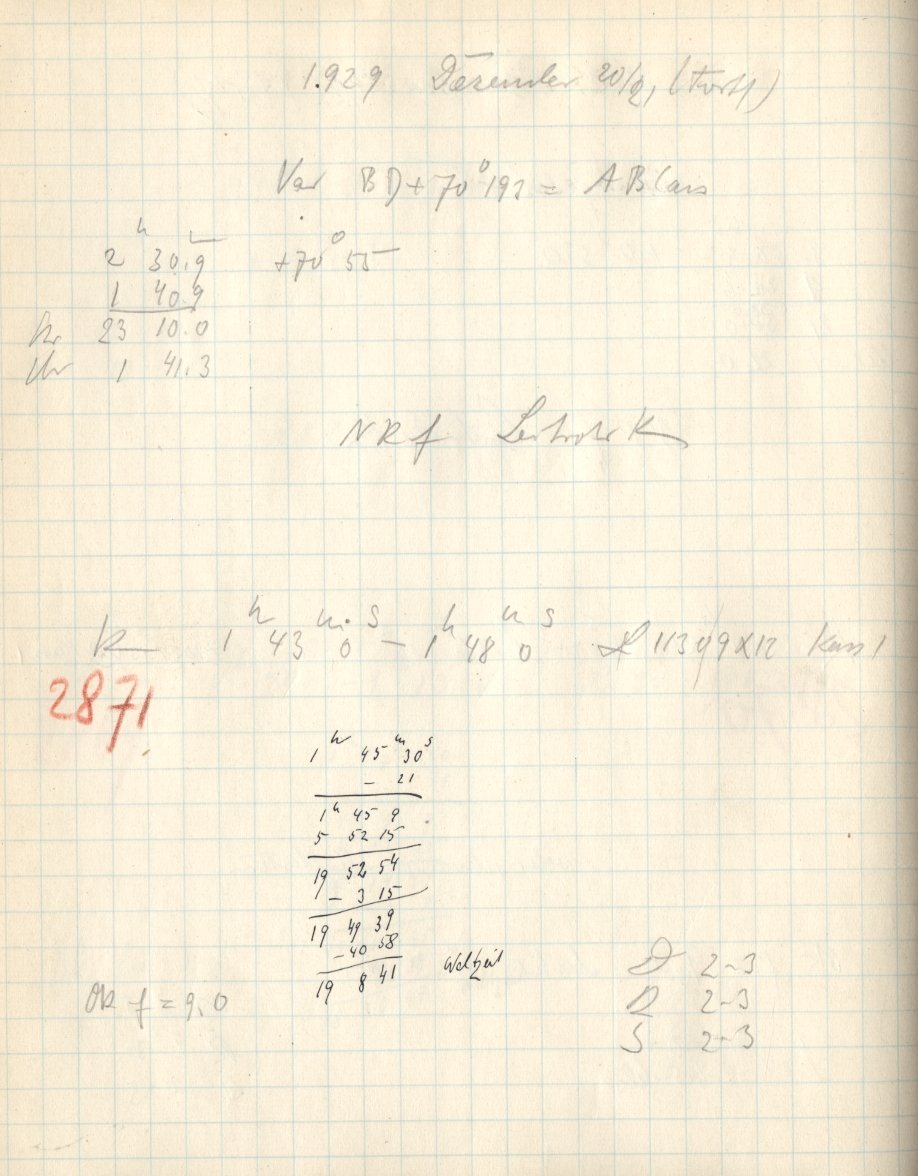 1929 Dezember 20/21 (Forts)
Var BD+70°192 = AB Cas
2ʰ 30.9 +70° 55
1 40.9
Kr 23 10.0
Uhr 1 41.3
NRf Leitrohr K
K 1ʰ 43ᵐ 0ˢ – 1ʰ 48ᵐ 0ˢ 1130/9X12 Kass 1
2871
1ʰ 45ᵐ 30ˢ
– 21
1ʰ 45 9
5 52 15
19 52 54
– 3 15
19 49 39
–40 58
19 8 41 Weltzeit
D 2-3
Ok f = 9,0 R 2-3
S 2-3